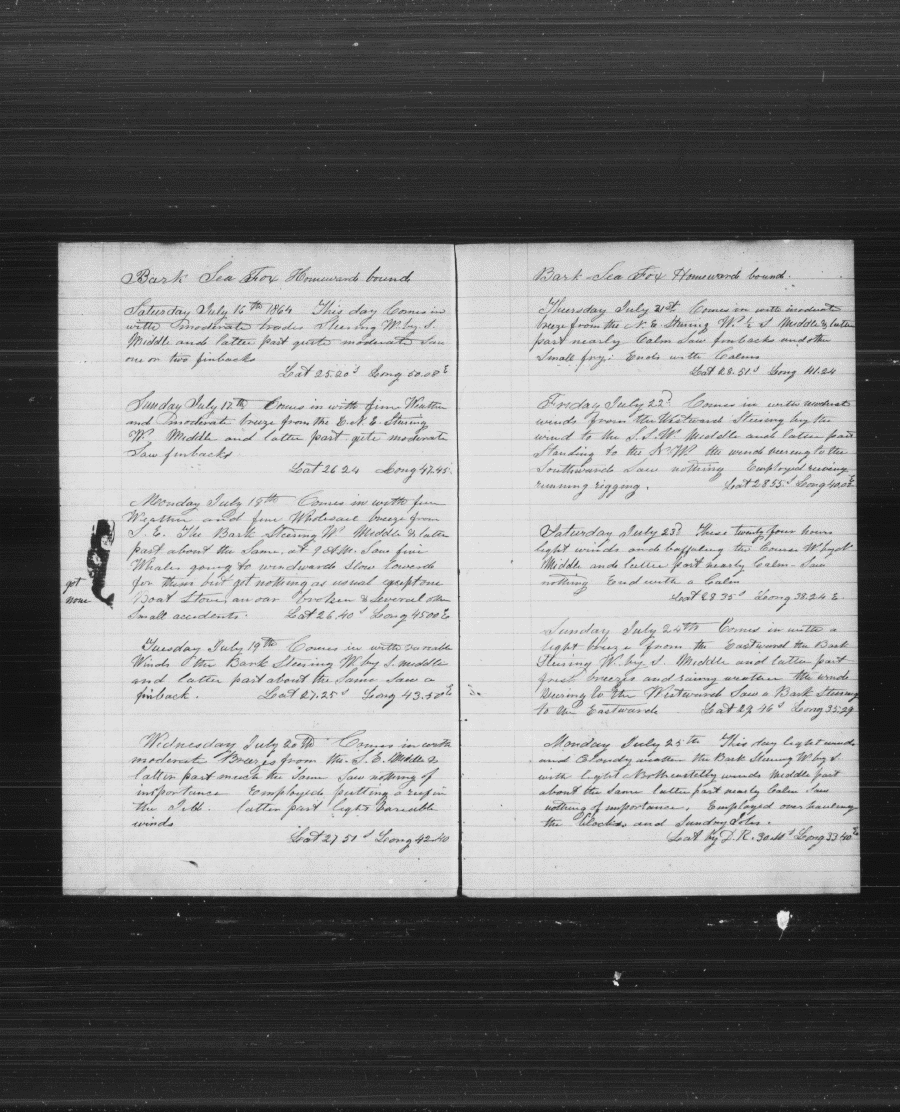 Bark Sea Fox Homeward bound
Saturday July 16th 1864 This day Comes in
with moderate trades Steering W. by S.
Middle and latter part quite moderate Saw
one or two finbacks
Lat 25.20 S Long 50.08 E
Sunday July 17th Comes in with fine Weather
and moderate breeze from the E.N.E. Steering
W. Middle and latter part quite moderate
Saw finbacks
Lat 26 24 Long 47.45
Monday July 18th Comes in with fine
Weather and fine Wholesail breeze from
S. E. The Bark Steering W. Middle & latter
part about the Same, at 9 A.M. Saw five
Whales going to windward Blow lowerd
for them but got nothing as usual except one
Boat Stove, an oar broken & Several other
Small accidents. Lat 26.40 S Long 45 00 E
got
none
Tuesday July 19th Comes in with variable
Winds the Bark Steering W. by S. middle
and latter part about the Same Saw a
finback. Lat 27.25 S Long 43.50 E
Wednesday July 20th Comes in with
moderate Breezes from the S. E. Middle &
latter part much the Same Saw nothing of
importance Employed putting a reef in
the Jibb. latter part light variable
winds
Lat 27 51 S Long 42.40
Bark Sea Fox Homeward bound.
Thursday July 21st Comes in with moderate
breeze from the N. E. Steering W. 1/2 S Middle & latter
part nearly Calm Saw finbacks and other
Small fry. Ends with Calms
Lat 28.51 S Long 41.24
Friday July 22d Comes in with moderate
winds from the Westward Steering by the
wind to the S. S. W. Middle and latter part
Standing to the N. W. the wind veering to the
Southward Saw nothing Employed reeving
running rigging. Lat 28 55 S Long 40.02 E
Saturday July 23d These twenty four hours
light winds and baffling the Course W by N
Middle and latter part nearly Calm. Saw
nothing End with a Calm
Lat 28 35 S Long 38.24 E.
Sunday July 24th Comes in with a
light breeze from the Eastward the Bark
Steering W. by S. Middle and latter part
fresh breezes and rainy weather the wind
Veering to the Westward Saw a Bark Steering
to the Eastward Lat 29 46 S Long 35:29
Monday July 25th This day light winds
and Cloudy weather the Bark Steering W. by S.
with light Northeasterly winds Middle part
about the Same latter part nearly Calm Saw
nothing of importance, Employed overhauling
the blocks and Sundry Jobs.
Lat by D. R. 30.10 S Long 33 40 E